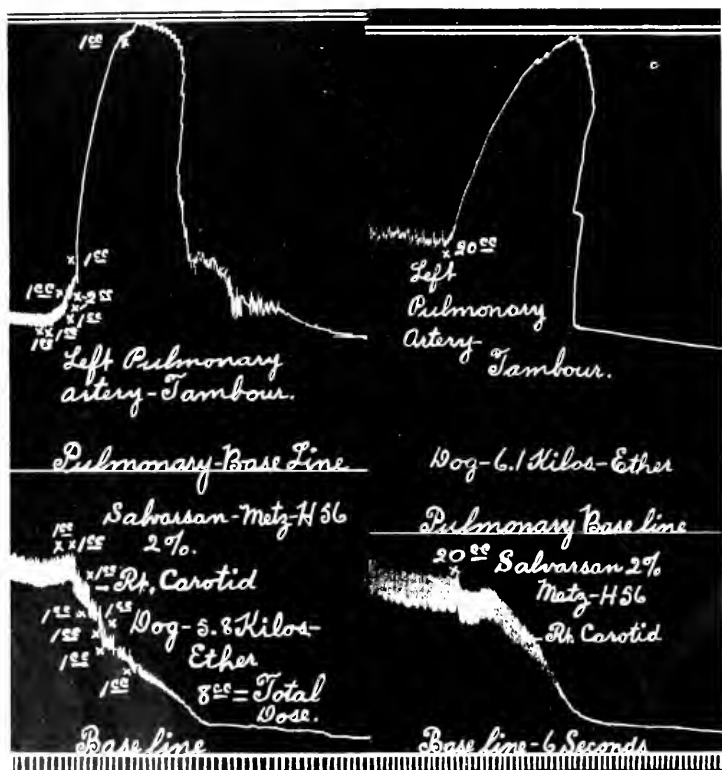 1cc
1cc
1cc
2cc
1cc
1cc
1cc
Left Pulmonary
artery-Tambour.
Pulmonary-Base Line
Salvarsan-Metz-H56
2%.
1cc
1cc
1cc
Rt. Carotid
1cc
1cc
1cc
1cc
1cc
Dog-5.8 Kilos-
Ether
8cc=Total
Dose.
Base line
20cc
Left
Pulmonary
Artery-
Tambour.
Dog-6.1 Kilos-Ether
Pulmonary Base line
20cc Salvarsan 2%
Metz-H56
Rt. Carotid
Base line-6 Seconds